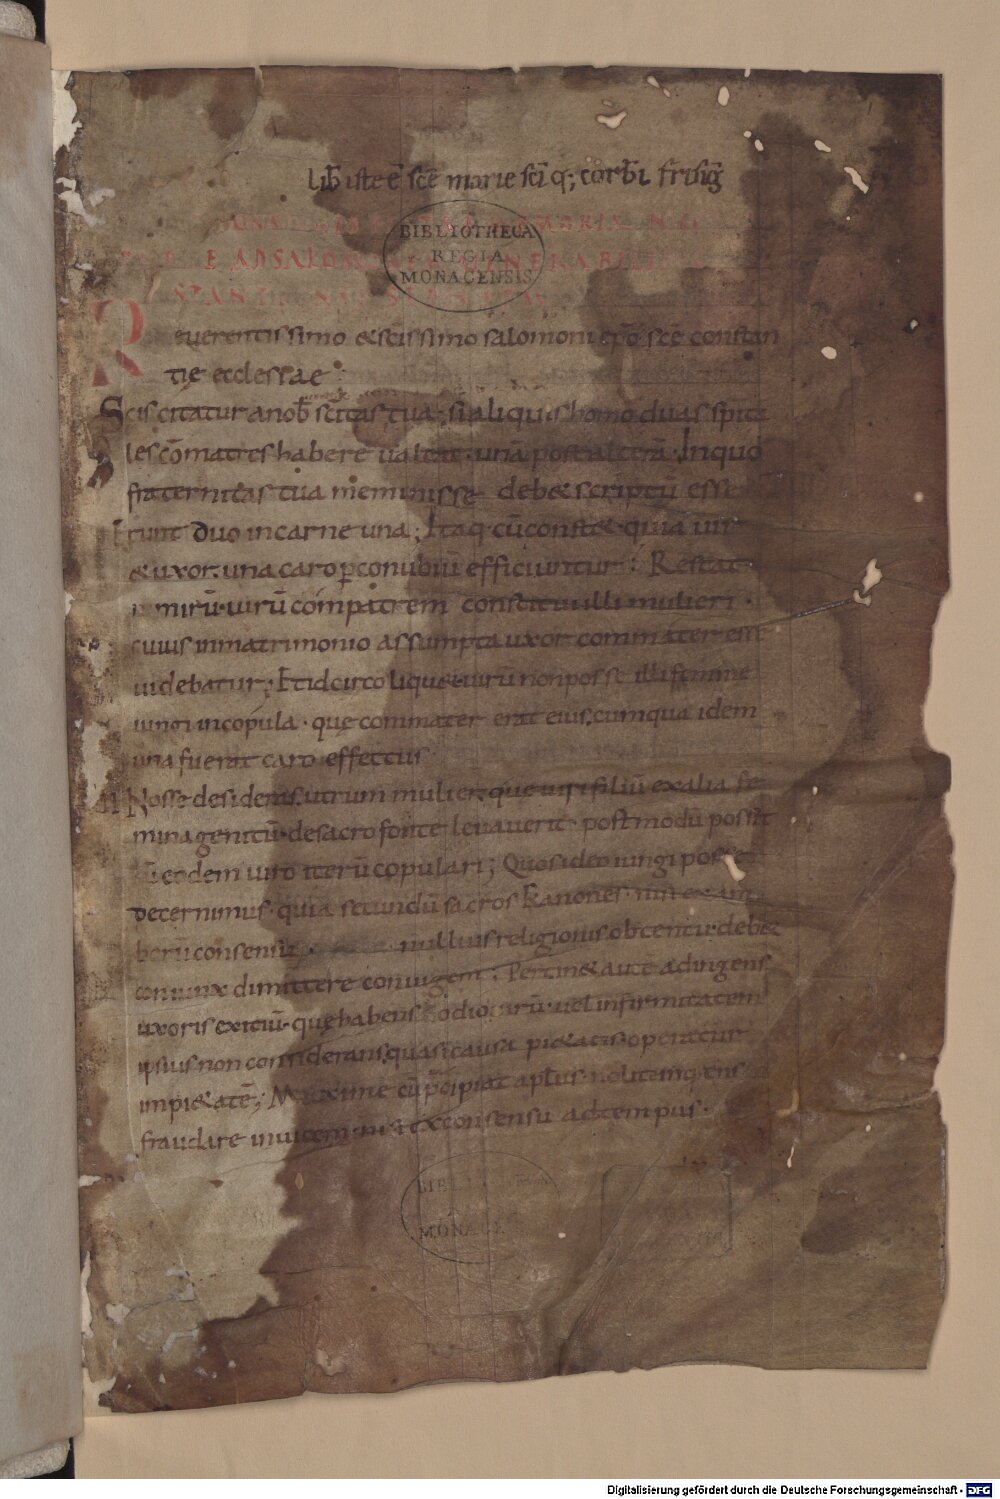 Lib̄ iste ē sc̄e marie sc̄i q; corb̄i frisīg
BIBLIOTHECA
REGIA
MONACENSIS
E AD SALOM
R
euerentissimo & sc̄issimo salomoni ep̄o sc̄e constan
tię ecclesiae
Sciscitatur a nob̄ scitas tua · si aliquis homo duas spirit
les cōmatres habere ualeat · unā post alterā · In quo
fraternitas tua meminisse deb& scriptū esse
Erunt duo in carne una ; Itaq· cū const& · quia uir
& uxor · una caro p conubiū efficiuntur : Restat
nimirū · uirū compatrem constitui illi mulieri ·
cuius in matrimonio assumpta uxor commater esse
uidebatur ; Et idcirco liqu& uirū non posse illi femine
iungi in copula · que commater erat eius · cum qua idem
una fuerat caro effectus ·
II Nosse desideras · utrum mulier · que uiri filiū ex alia fe
mina genitū · de sacro fonte leuauerit · postmodū possit
c̄ eodem uiro iterū copulari ; Quos ideo iungi posse
decernimus · quia secundū sacros kanones · nisi ex am
borū consensu · nullius religionis obtentu · debet
coniunx dimittere coniugem · Pertin& autē ad ingens
uxoris exitiū · que habens odio uirū · uel infirmitatem
ipsius non considerans · quasi causa pi&atis · operatur
impi&atē ; Maxime cū p̄cipiat apl̄us · nolite inq̄ens
fraudare inuicem · nisi ex consensu ad tempus ·
BIBL
MONAC
Digitalisierung gefördert durch die Deutsche Forschungsgemeinschaft - DFG